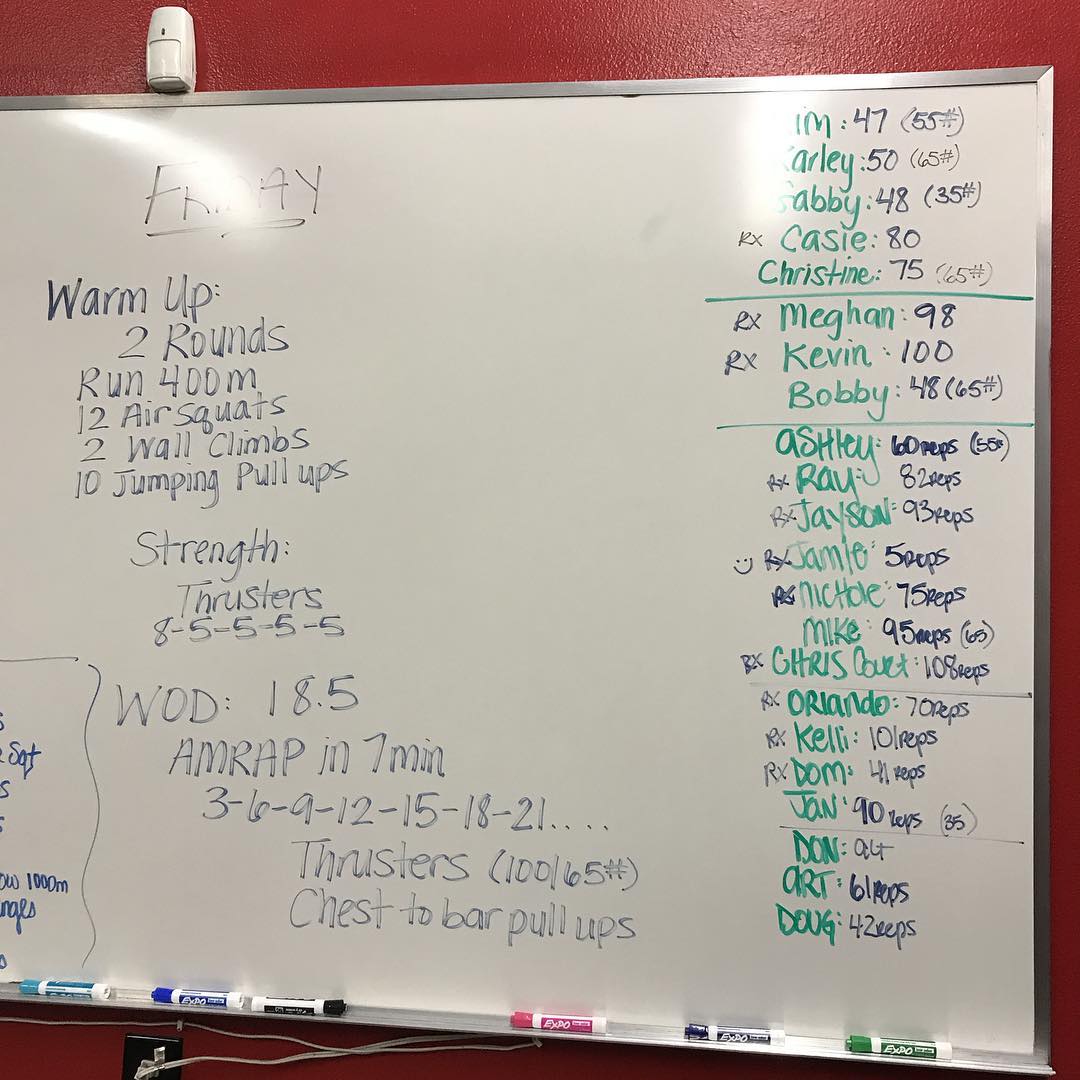 FRIDAY
Warm Up:
2 Rounds
Run 400m
12 Air Squats
2 Wall Climbs
10 Jumping Pull ups
Strength:
Thrusters
8-5-5-5-5
WOD: 18.5
AMRAP in 7min
3-6-9-12-15-18-21....
Thrusters (100/65#)
Chest to bar pull ups
Sqt
ow 1000m
nges
im: 47 (55#)
arley: 50 (65#)
abby: 48 (35#)
RX Casie: 80
Christine: 75 (65#)
RX Meghan: 98
RX Kevin: 100
Bobby: 48 (65#)
ASHley: 60reps (55#)
RX RAY: 82reps
RX JAYSON: 93reps
RX Jamie: 5reps
RX NICHOLE: 75reps
MIKE: 95reps (65)
RX CHRIS Court: 108reps
RX ORlando: 70reps
RX Kelli: 101reps
RX DOM: 41reps
JAN: 90 reps (35)
DON:
ART: 61reps
DOUG: 42reps
EXPO
EXPO
EXPO
EXPO